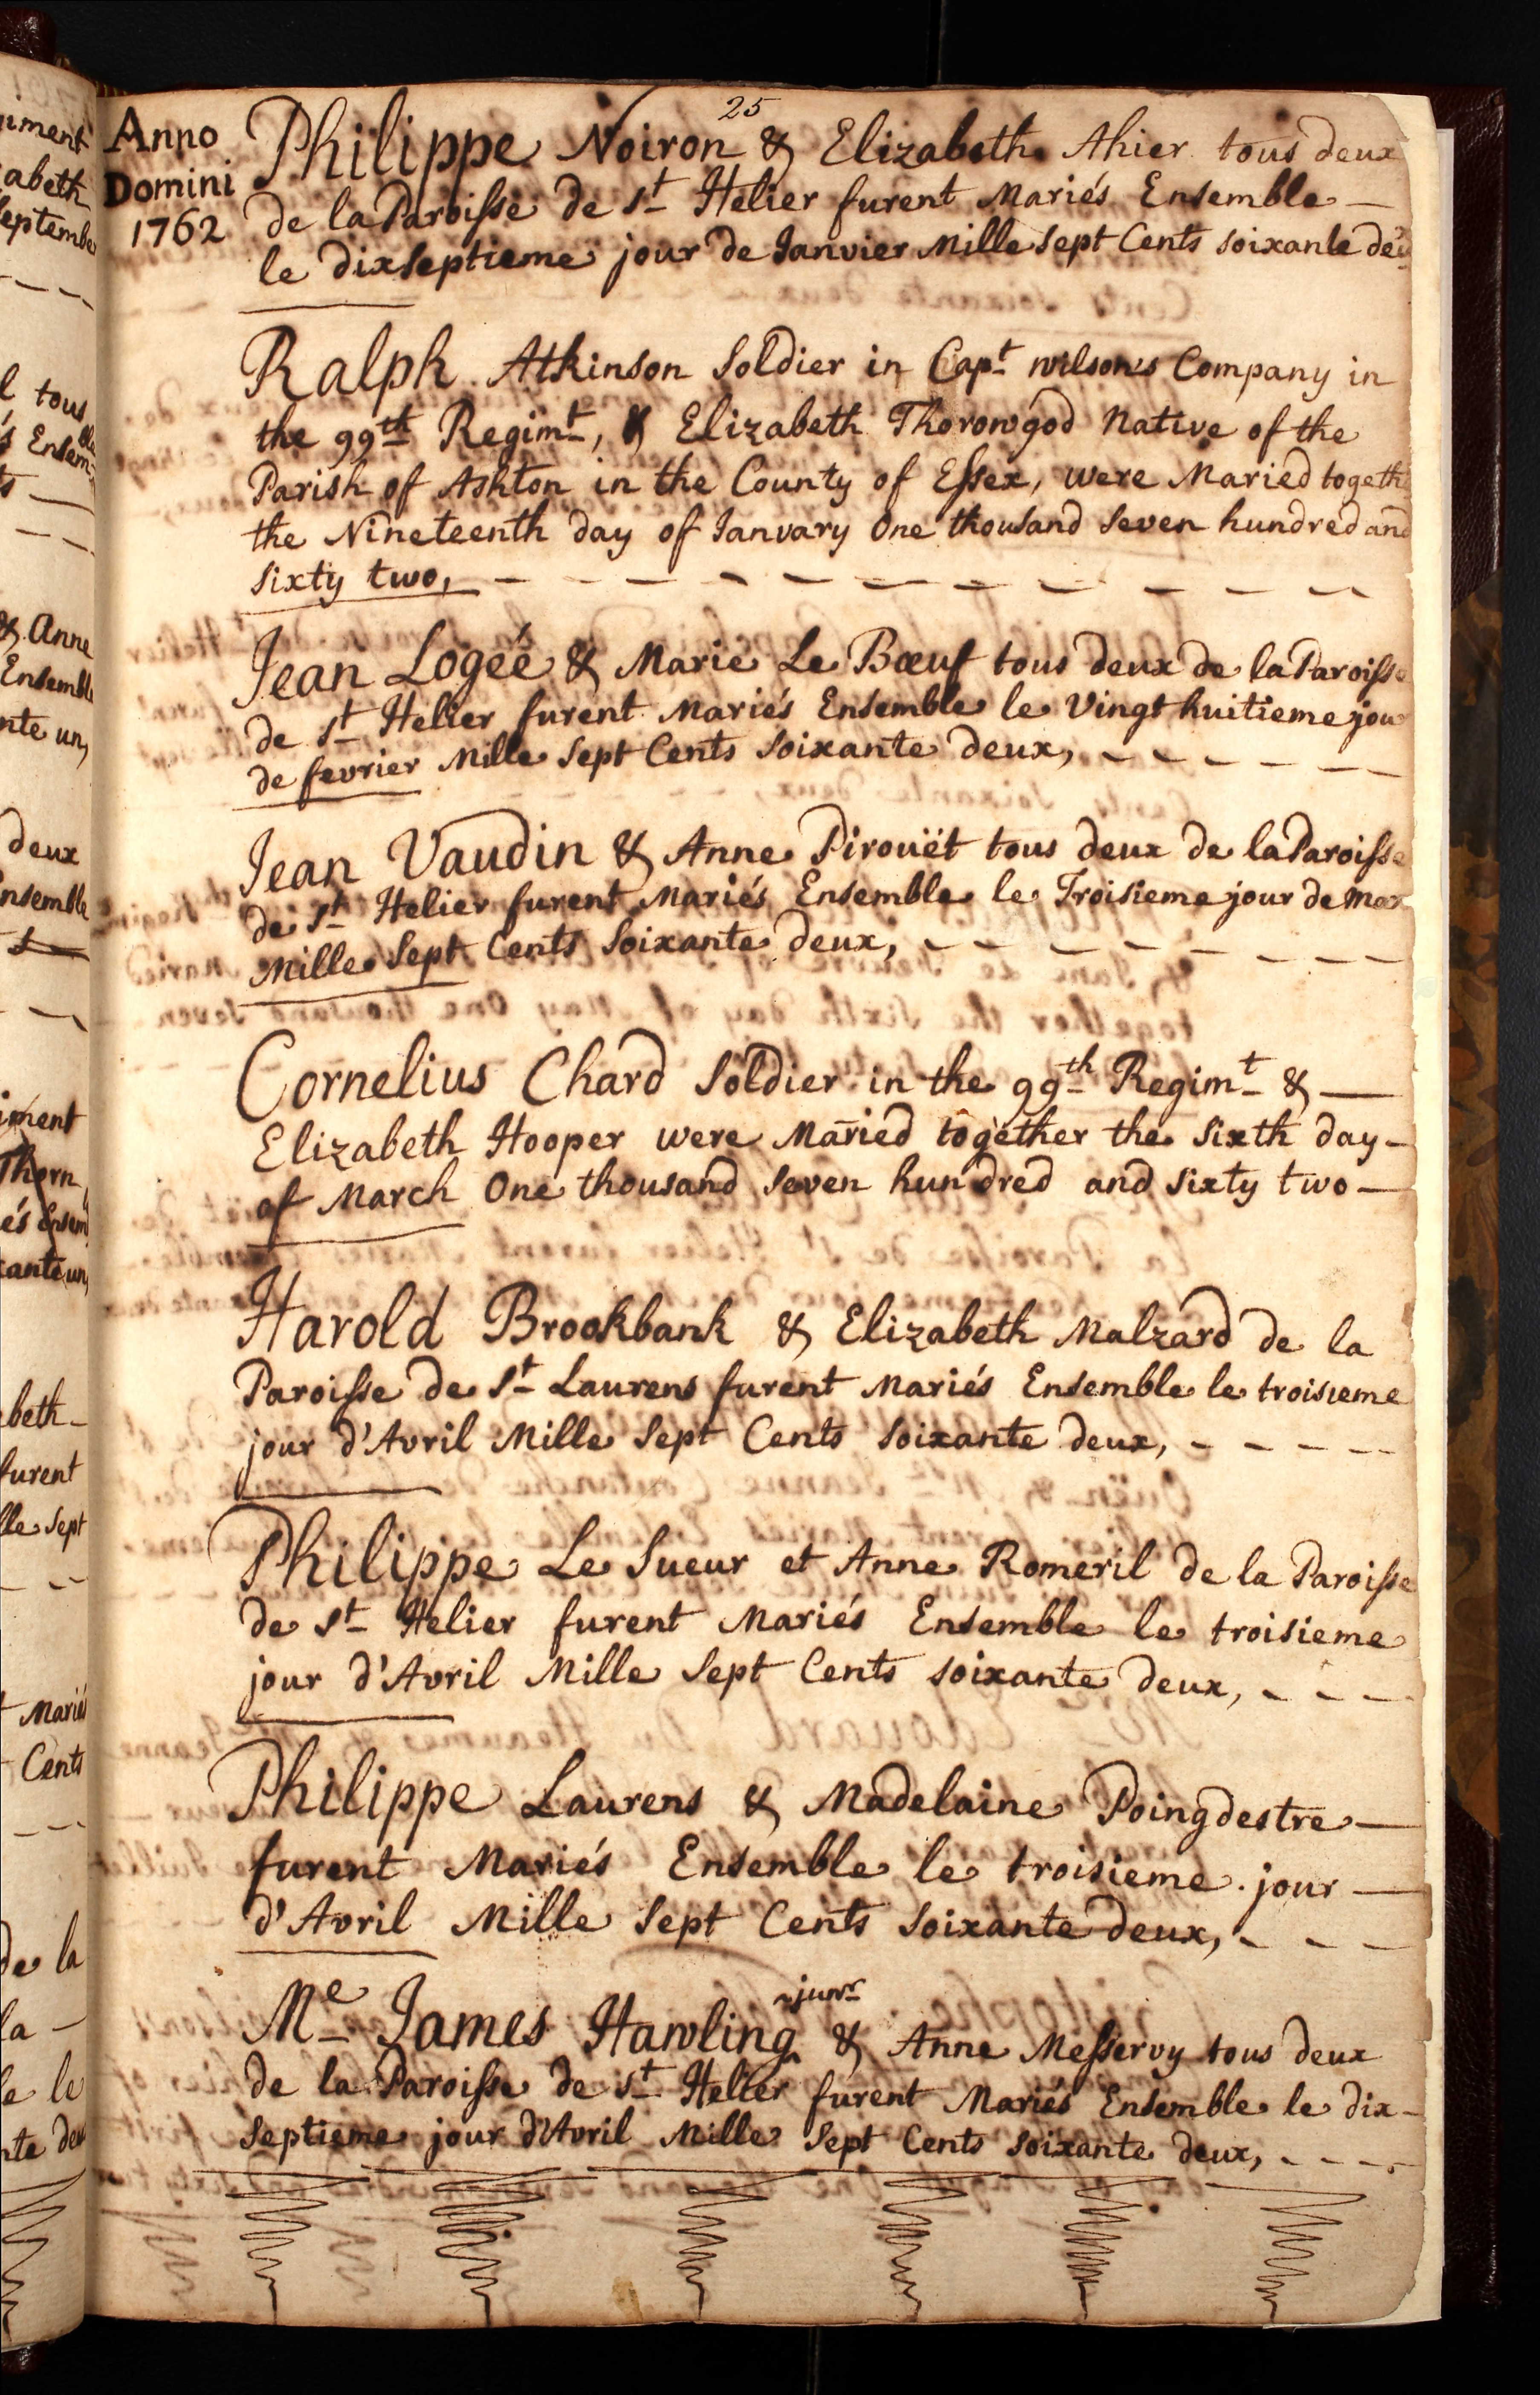 25
Anno
Domini
1762
Philippe Noiron & Elizabeth Ahier tous deux
de la Paroisse de St Helier furent Mariés Ensemble
le dixseptieme jour de Janvier Mille Sept Cents soixante deu
Ralph Atkinson Soldier in Capt wilsons Company in
the 99th Regimt, & Elizabeth Thorowgod Native of the
Parish of Ashton in the County of Essex, were Maried togeth
the Nineteenth day of January One thousand Seven hundred and
Sixty two,
Jean Logeé & Marie Le Bœuf tous deux de la Paroisse
de St Helier furent Mariés Ensemble le Vingt huitieme jou
de fevrier Mille Sept Cents Soixante deux,
Jean Vaudin & Anne Pirouët tous deux de la Paroisse
de St Helier furent Mariés Ensemble le Troisieme jour de Mar
Mille Sept Cents Soixante deux,
Cornelius Chard Soldier in the 99th Regimt &
Elizabeth Hooper were Maried together the Sixth day
of March One thousand Seven hundred and Sixty two
Harold Brookbank & Elizabeth Malzard de la
Paroisse de St Laurens furent Mariés Ensemble le troisieme
jour d'Avril Mille Sept Cents Soixante deux,
Philippe Le Sueur et Anne Romeril de la Paroisse
de St Helier furent Mariés Ensemble le troisieme
jour d'Avril Mille Sept Cents soixante deux,
Philippe Laurens & Madelaine Poingdestre
furent Mariés Ensemble le troisieme jour
d'Avril Mille Sept Cents Soixante deux,
Me James Hawling junr & Anne Messervy tous deux
de la Paroisse de St Helier furent Mariés Ensemble le dix-
Septieme jour d'Avril Mille Sept Cents soixante deux,